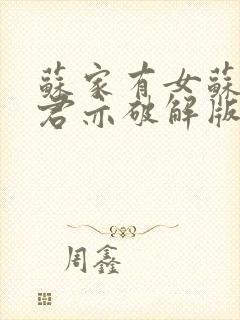 蘇家有女蘇
君亦破解版
周鑫